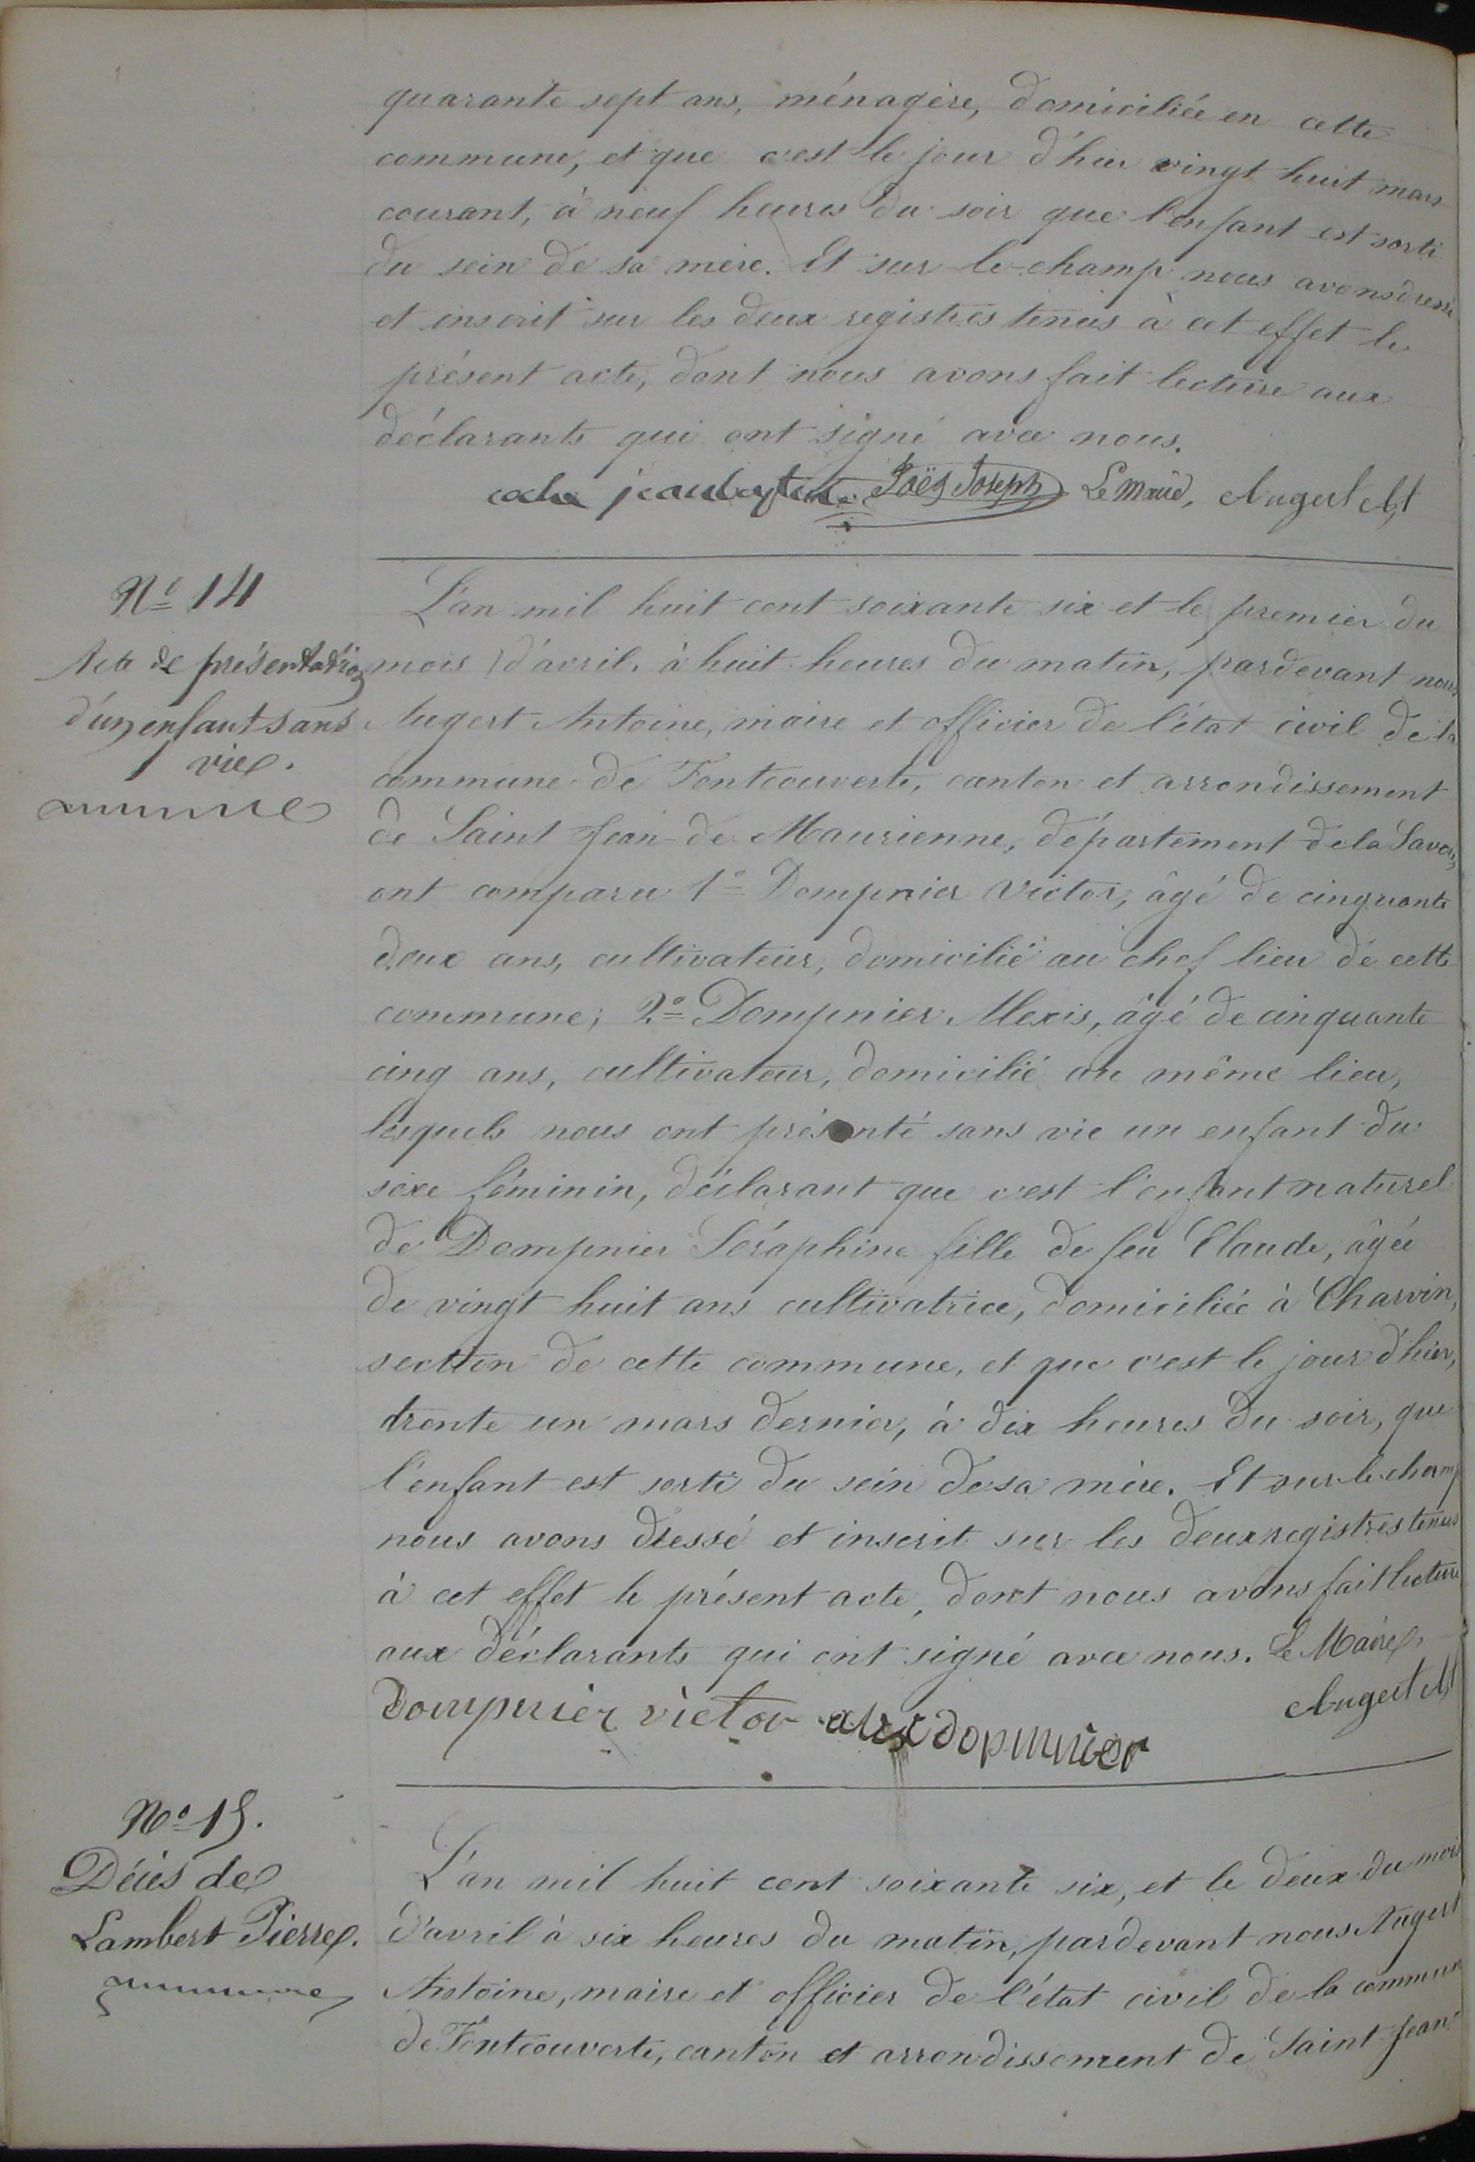 quarante sept ans, ménagère, domiciliée en cette
commune, et que c'est le jour d'hier vingt huit mars
courant, à neuf heures du soir que l'enfant est sorti
du sein de sa mère. Et sur le champ nous avons dressé
et inscrit sur les deux registres tenus à cet effet le
présent acte, dont nous avons fait lecture aux
déclarants qui ont signé avec nous.
jeanbaptiste Joseph Le Maire, Augert At
Nº 14
Acte de présentation
d'un enfant sans
vie.
L'an mil huit cent soixante six et le premier du
mois d'avril, à huit heures du matin, pardevant nous
Augert Antoine, maire et officier de l'état civil de la
commune de Fontcouverte, canton et arrondissement
de Saint Jean de Maurienne, département de la Savoie,
ont comparu 1º Dompnier Victor, âgé de cinquante
deux ans, cultivateur, domicilié au chef lieu de cette
commune; 2º Dompnier Alexis, âgé de cinquante
cinq ans, cultivateur, domicilié au même lieu,
lesquels nous ont présenté sans vie un enfant du
sexe féminin, déclarant que c'est l'enfant naturel
de Dompnier Séraphine fille de feu Claude, âgée
de vingt huit ans cultivatrice, domiciliée à Charvin,
section de cette commune, et que c'est le jour d'hier,
trente un mars dernier, à dix heures du soir, que
l'enfant est sorti du sein de sa mère. Et sur le champ
nous avons dressé et inscrit sur les deux registres tenus
à cet effet le présent acte, dont nous avons fait lecture
aux déclarants qui ont signé avec nous. Le Maire,
Dompnier victor alexi dopmnier Augert At
Nº 15.
Décès de
Lambert Pierre.
L'an mil huit cent soixante six, et le deux du mois
d'avril à six heures du matin, pardevant nous Augert
Antoine, maire et officier de l'état civil de la commune
de Fontcouverte, canton et arrondissement de Saint Jean